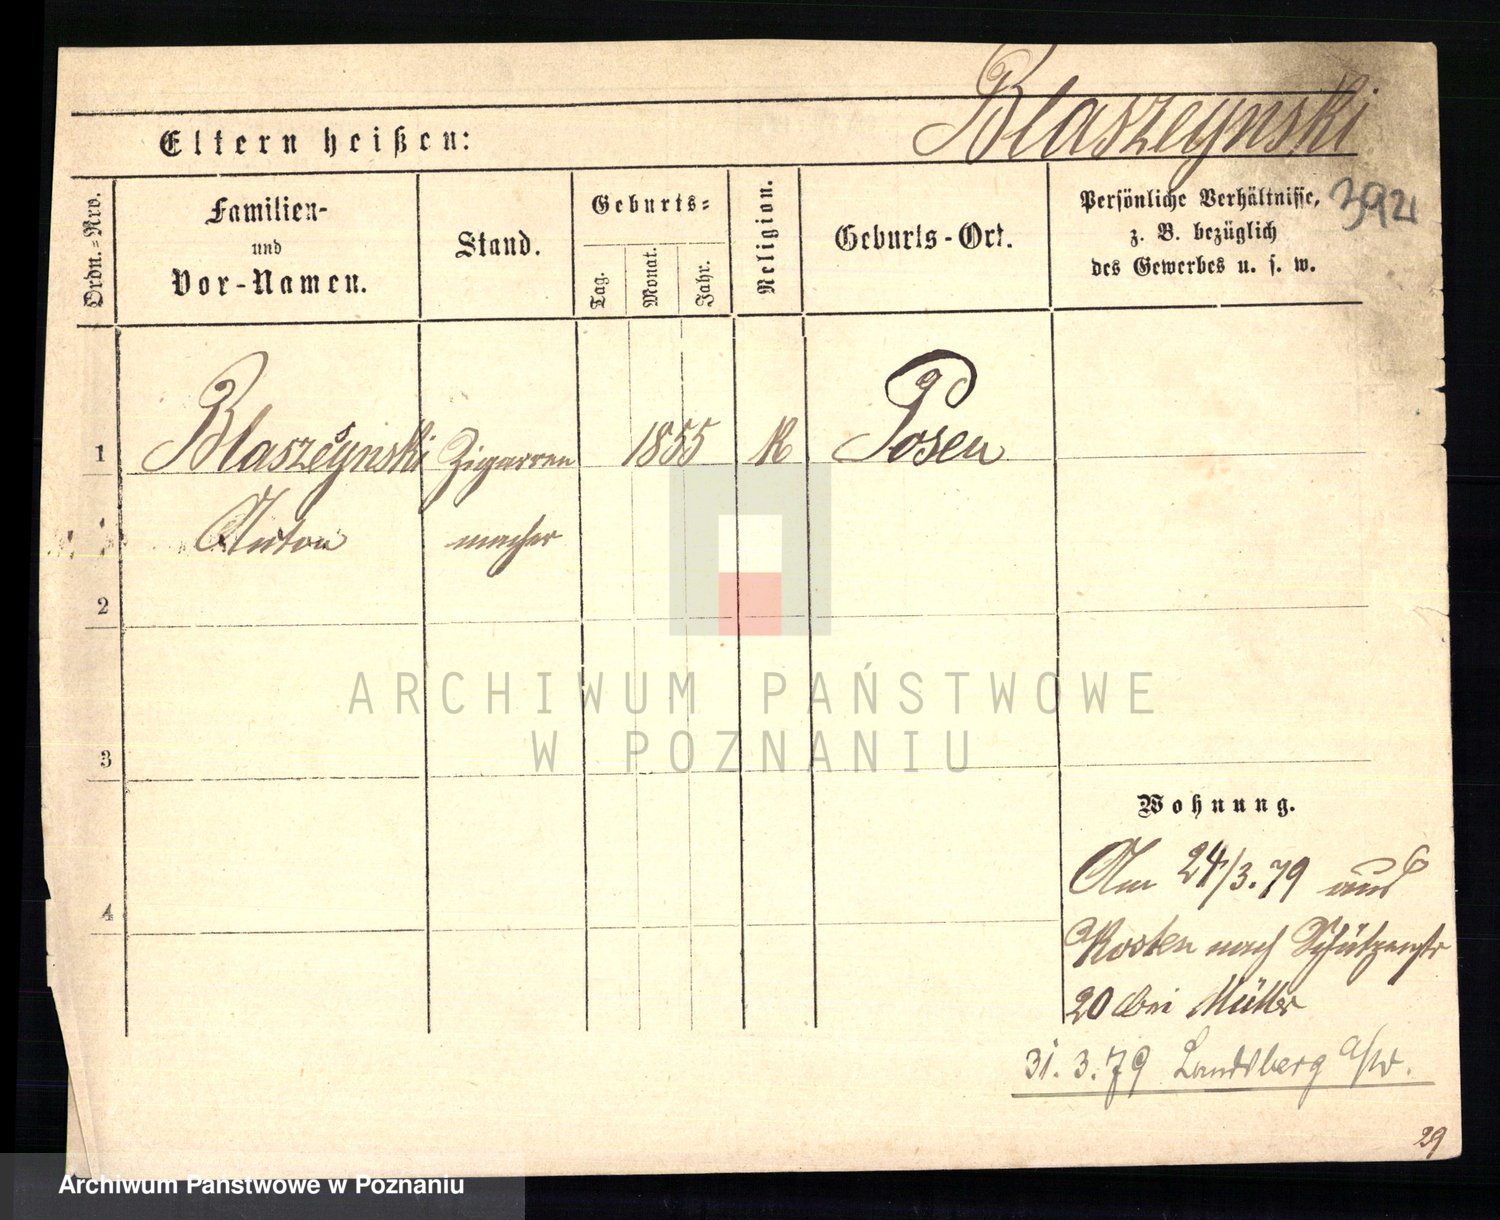 Blaszeynski
Eltern heißen:
3921
Ordn.=Nro.
Familien-
und
Vor-Namen.
Stand.
Geburts=
Tag.
Monat.
Jahr.
Religion.
Geburts-Ort.
Persönliche Verhältnisse,
z. B. bezüglich
des Gewerbes u. s. w.
1
Blaszeynski Zigarren 1855 K Posen
Anton macher
2
3
4
Wohnung.
Am 24/3.79 aus
Kosten nach Schützenstr
20 bei Müller
31.3.79 Landsberg a/W.
29
ARCHIWUM PAŃSTWOWE
W POZNANIU
Archiwum Państwowe w Poznaniu